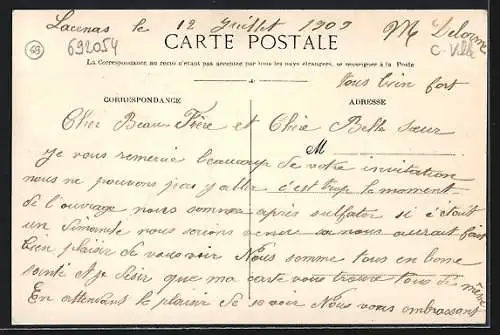 Lacenas le 12 Juillet 1909 M Delorme
C. Ville
692054
CARTE POSTALE
La Correspondance au recto n'étant pas acceptée par tous les pays étrangers, se renseigner à la Poste
vous bien fort
CORRESPONDANCE ADRESSE
Cher Beau Frère et Chère Belle sœur
M
Je vous remercie beaucoup de votre invitation
nous ne pouvons pas y aller c'est trop le moment
de l'ouvrage nous sommes après sulfater si c'était
un Dimanche nous serions venu nous aurait fait
bien plaisir de vous voir Nous somme tous en bone
santé et je désir que ma carte vous trouve tous de même
En attendant le plaisir de se voir Nous vous embrassons